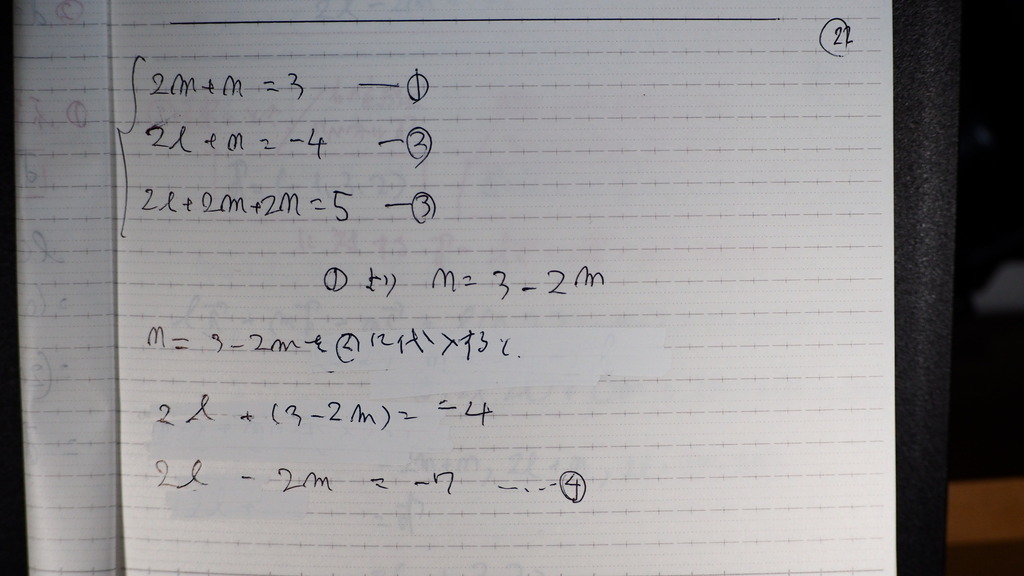 22
2m+n=3 —①
2l+n=-4 —③
2l+2m+2n=5 —③
①より n=3-2m
n=3-2mを②に代入すると
2l+(3-2m)=-4
2l-2m=-7 ……④